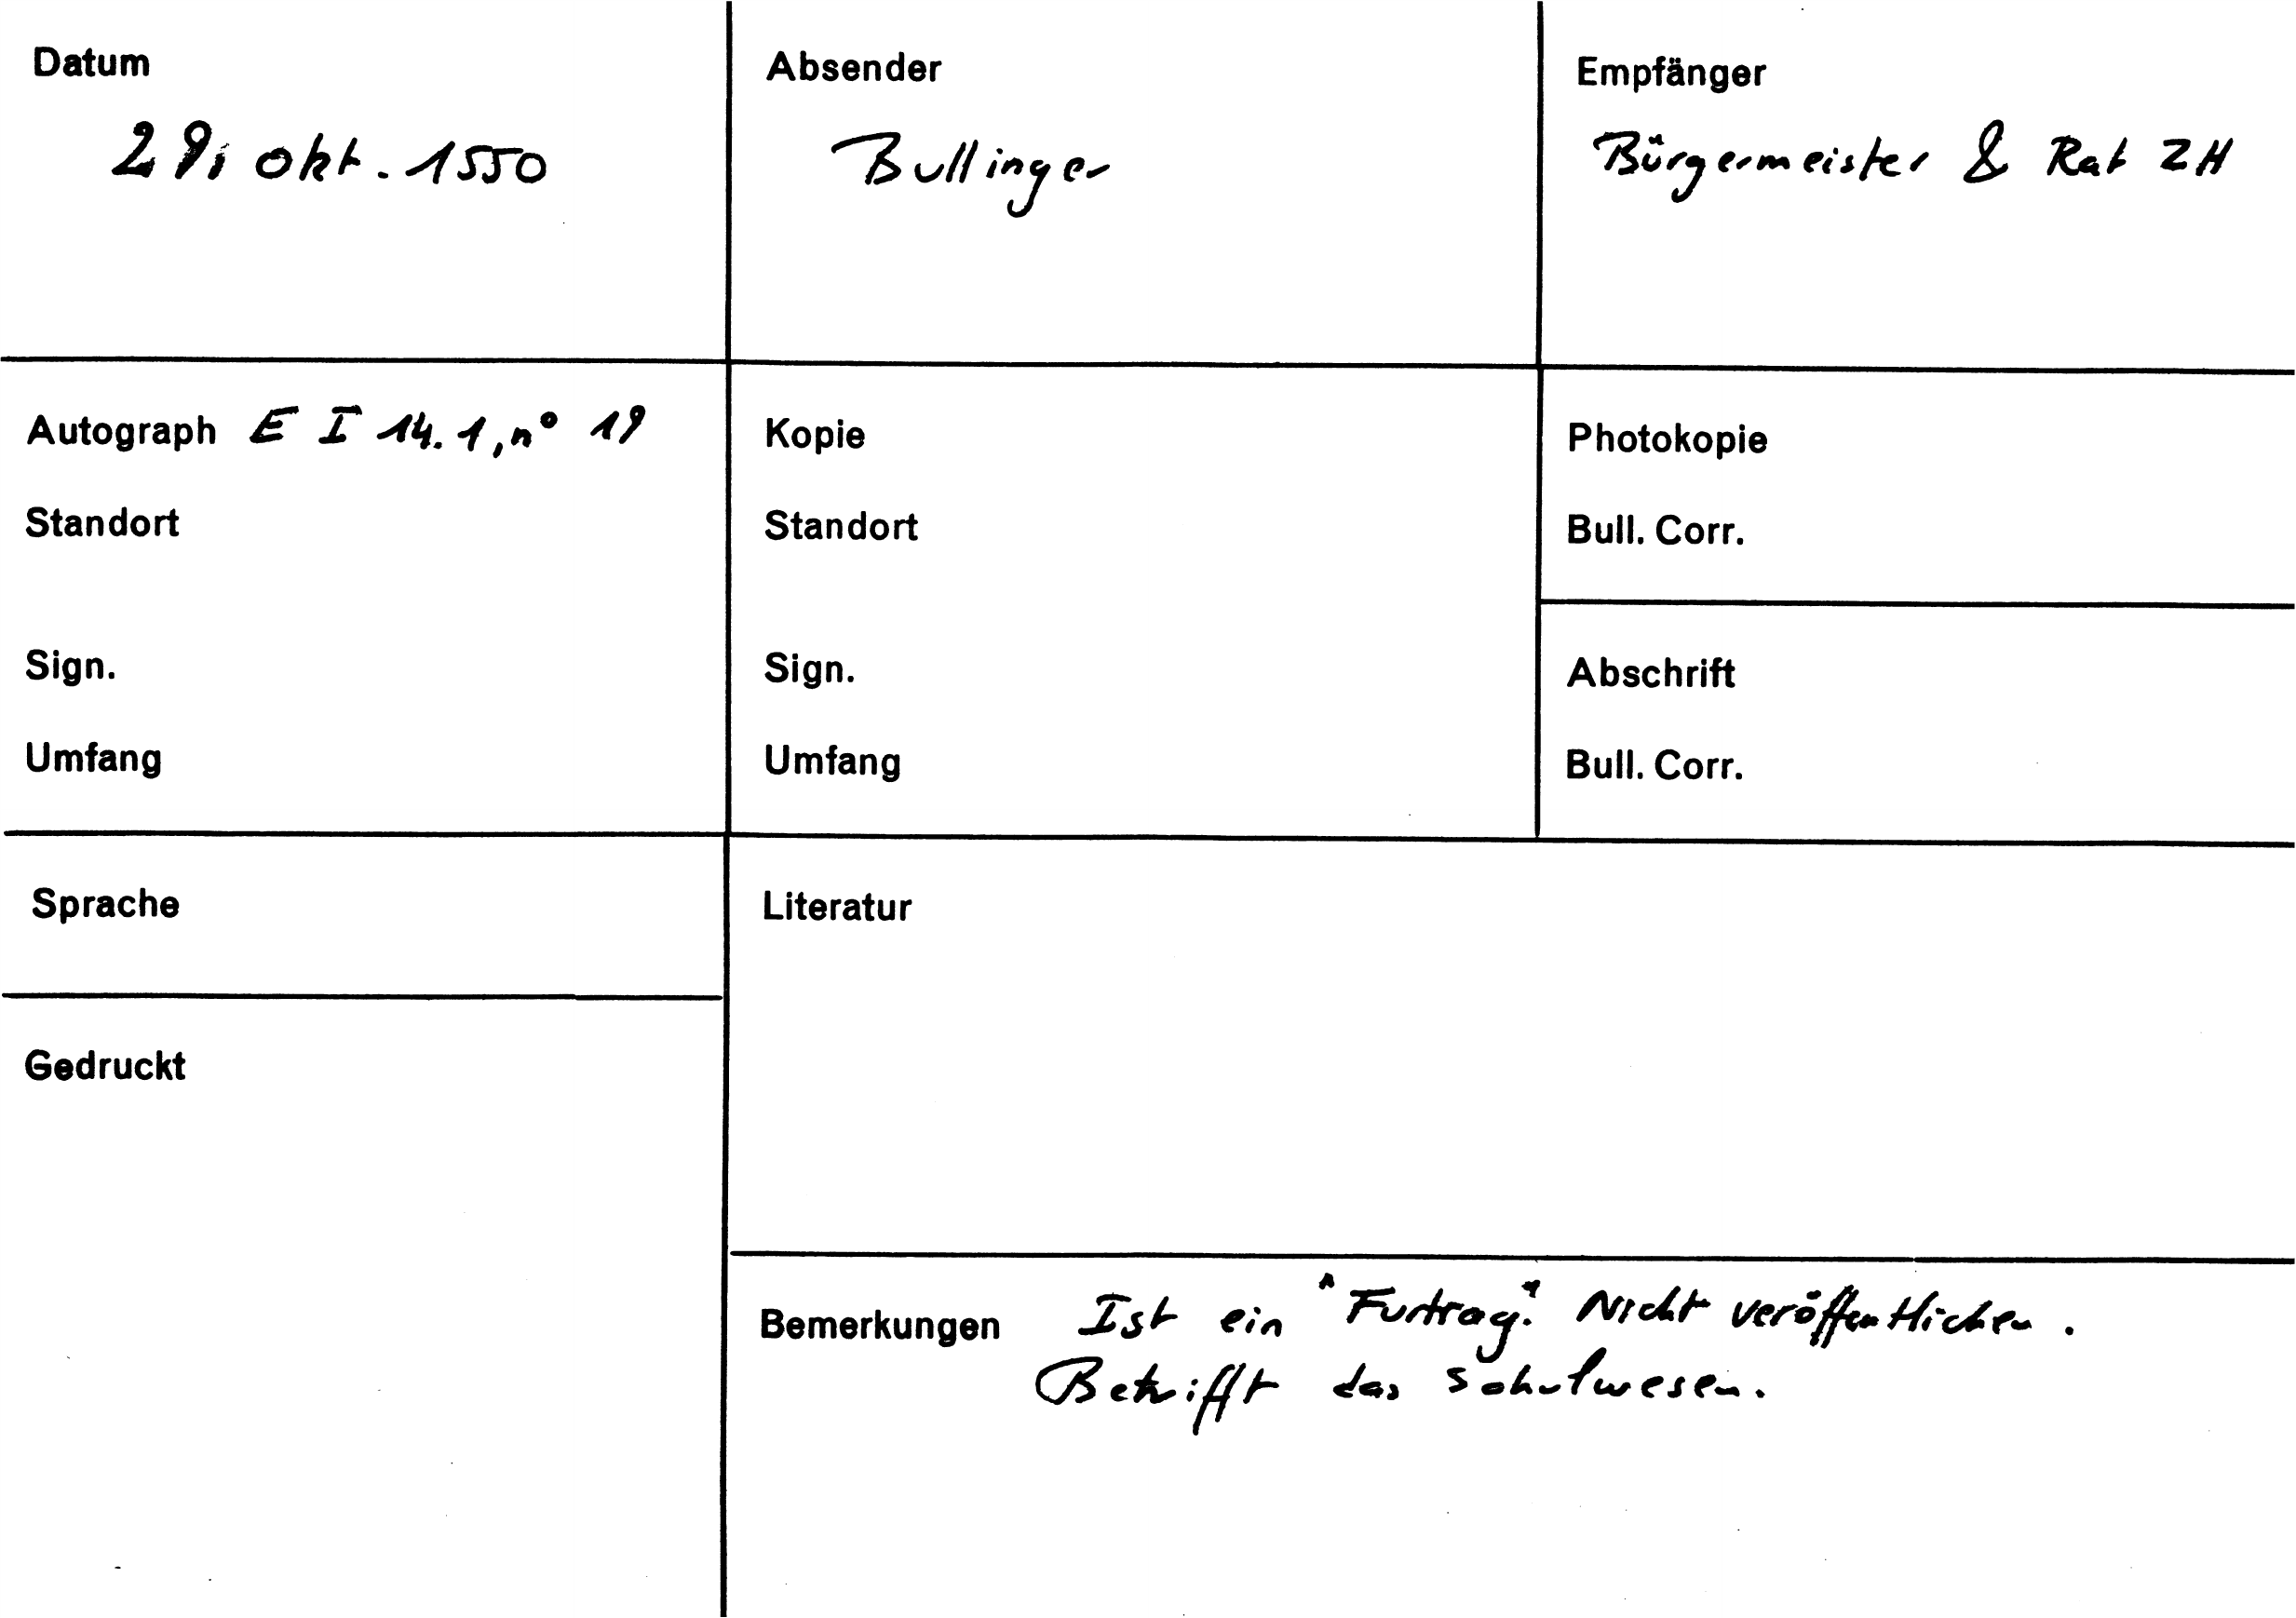 Datum
29. Okt. 1550
Absender
Bullinger
Empfänger
Bürgermeister & Rat ZH
Autograph E I 14.1, n° 19
Standort
Sign.
Umfang
Kopie
Standort
Sign.
Umfang
Photokopie
Bull. Corr.
Abschrift
Bull. Corr.
Sprache
Gedruckt
Literatur
Bemerkungen Ist ein "Furtrag". Nicht veröffentlichen.
Betrifft das Schulwesen.